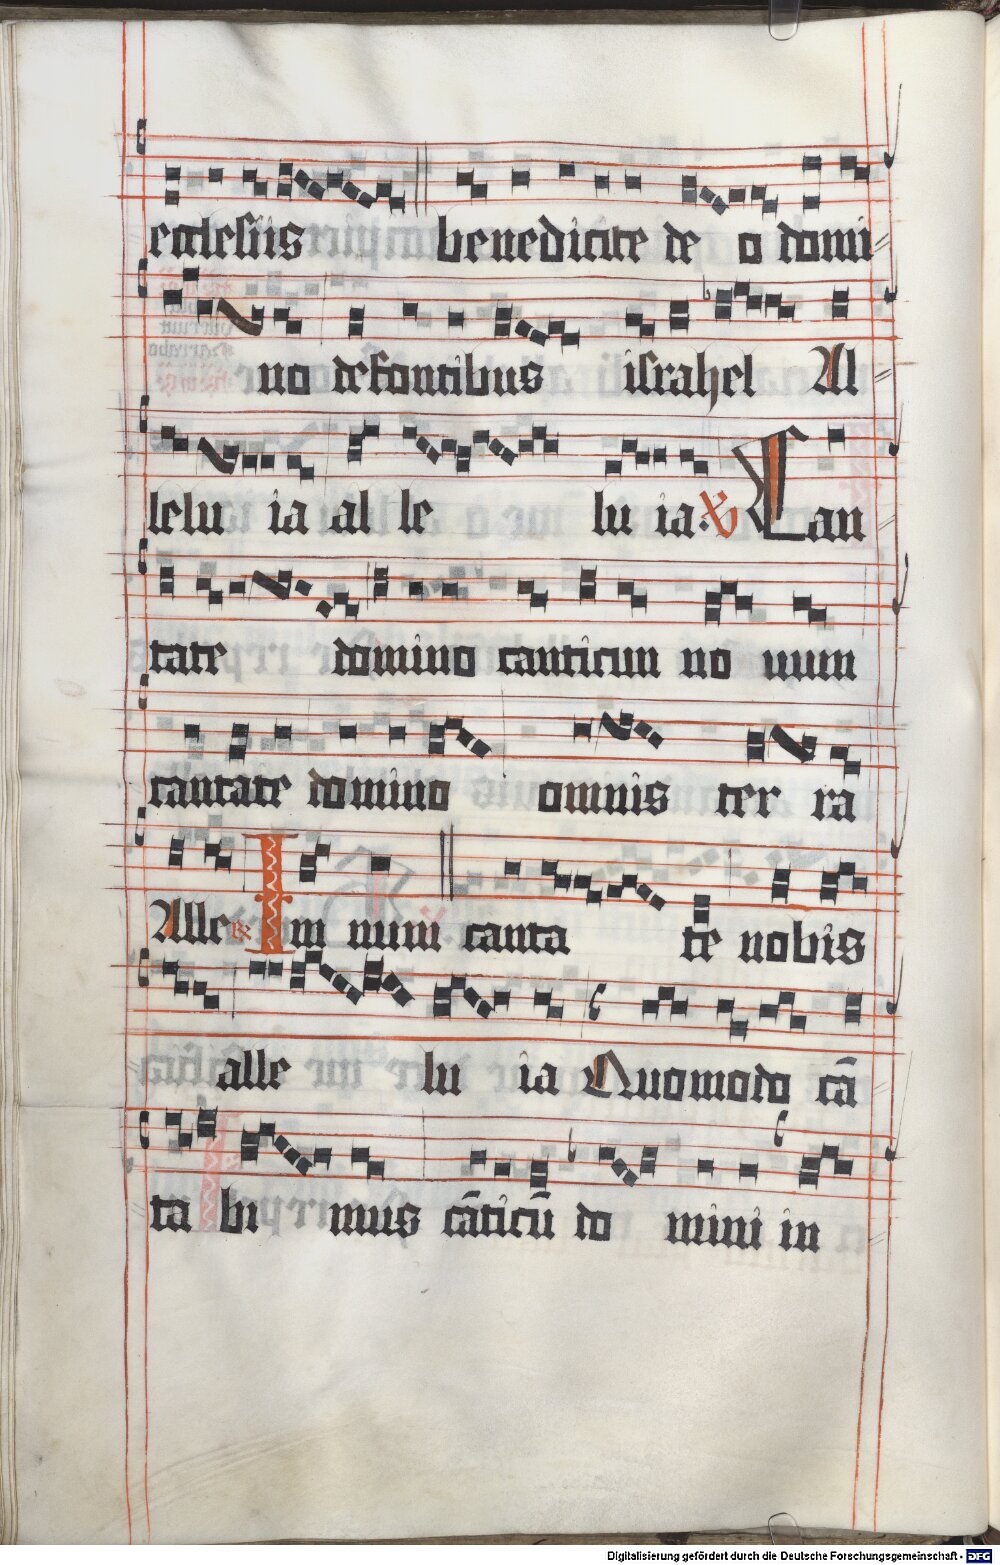 ecclesiis benedicite deo domi
no de fontibus israhel Al
leluia alleluia. ℣ Can
tate domino canticum novum
cantate domino omnis terra
Alle ℟ Imnum cantate nobis
alleluia Quomodo cā
tabimus cāticū domini in
Digitalisierung gefördert durch die Deutsche Forschungsgemeinschaft - DFG